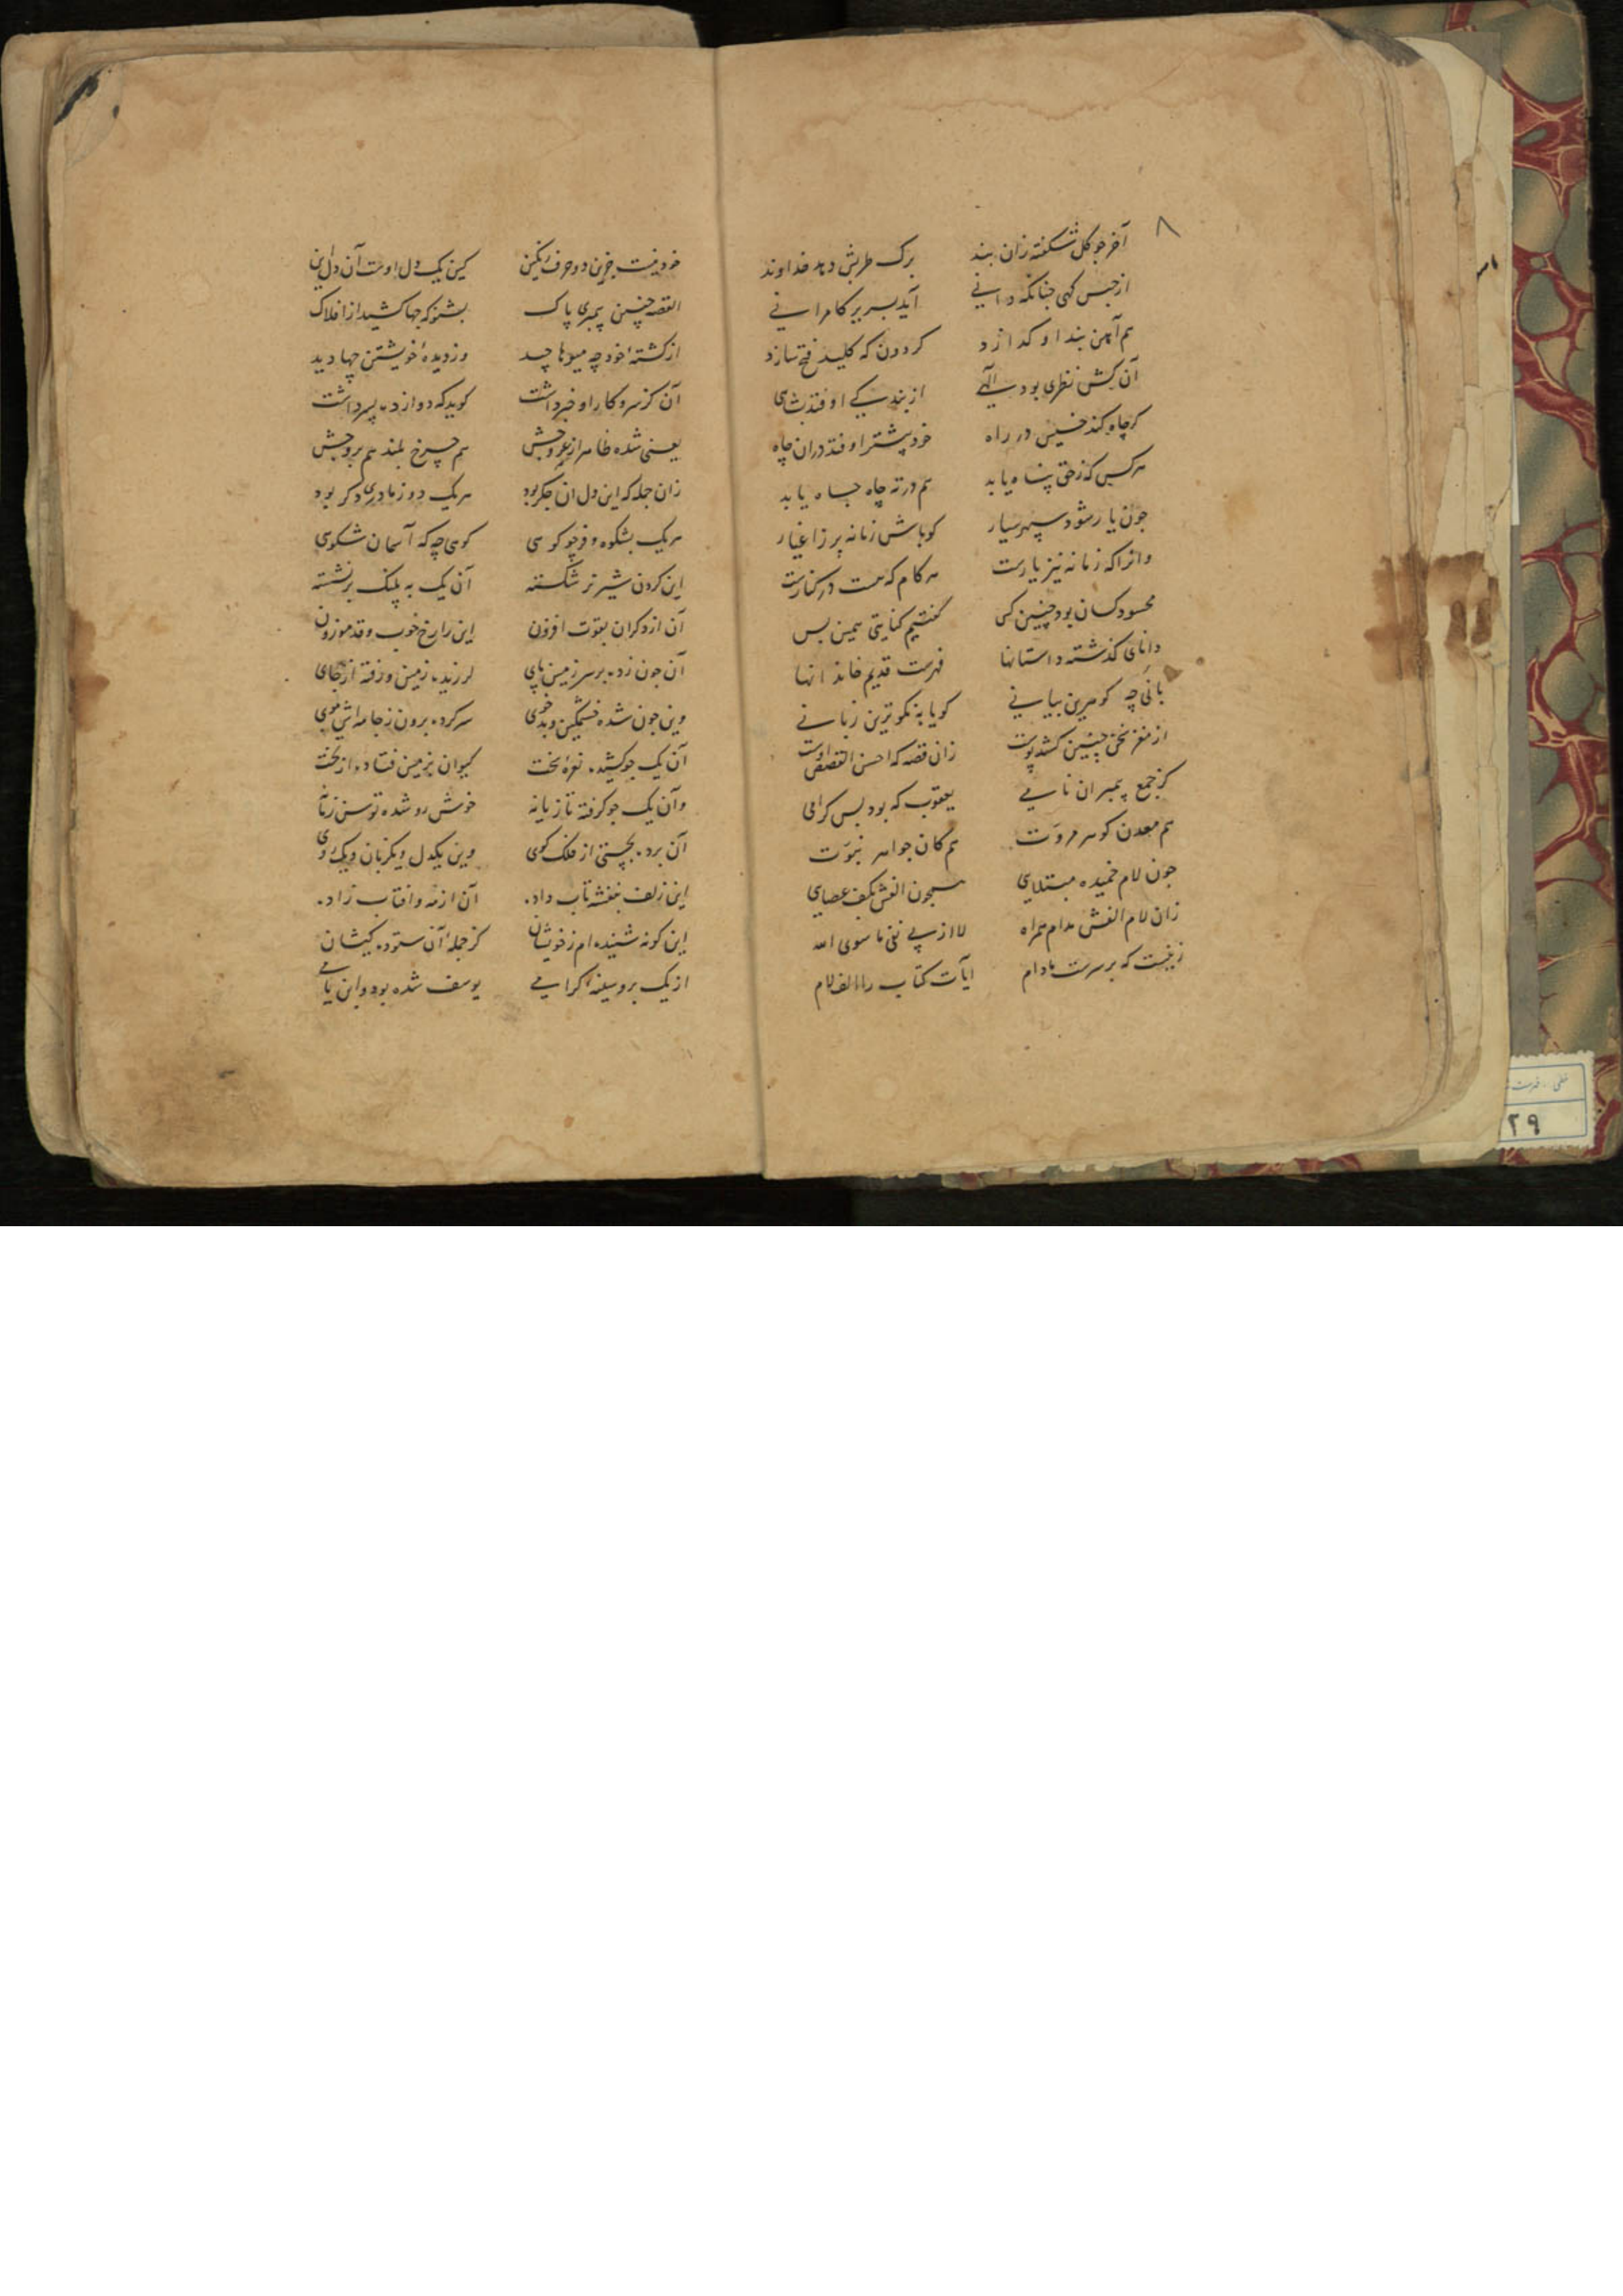 ۸
آخر چو گل شکفته زان بند برگ طربش دهد خداوند
از حبس کهی چنانکه دانی آید بسریر کامرانی
هم آهن بند او گدازد کردون که کلید فتح سازد
آن کش نظری بود الهی از بند کی اوفتد بشاهی
گر چاه کند خسیس در راه خود پیشتر اوفتد دران چاه
هر کس که ز حق پناه یابد هم در ته چاه جاه یابد
چون یار شود سپهر سیار کو باش زمانه پر ز اغیار
وانرا که زمانه نیز یارست هر کام که هست در کنارست
محسود کسان بود چنین کس گفتیم کنایتی همین بس
دانای گذشته داستانها فهرست قدیم خاندانها
بانی چه کوهرین بیانی کویا به نکوترین زبانی
از مغز سخن چنین کشد پوست زان قصه که احسن القصص اوست
کز جمع پیمبران نامی یعقوب که بود بس کرامی
هم معدن کوهر مروت هم کان جواهر نبوت
چون لام خمیده مبتلای همچون الفش بکف عصای
زان لام الفش مدام همراه لا از پی نفی ما سوی الله
زینست که بر سرت مادام ایات کتاب را الف لام
خود نیست جز این دو حرف رنکین کین یک دل اوست آن دل این
القصه چنین پیمبری پاک بشنو که چها کشید از افلاک
از کشته خود چه میوها چید وز دیده خویشتن چها دید
آن کز سر و کار او خبر داشت کوید که دوازده پسر داشت
یعنی شده ظاهر از عروجش هم چرخ بلند هم بروجش
زان جمله که این دل آن جکر بود هر یک دو ز مادری دکر بود
هر یک بشکوه و فر چو کوهی کوهی چه که آسمان شکوهی
این کردن شیر نر شکسته آن یک به پلنک برنشسته
آن از دکران بقوت افزون این را رخ خوب و قد موزون
آن چون زده بر سر زمین پای لرزیده زمین و رفته از جای
وین چون شده خشمکین و بدخوی سر کرده برون ز جامه اش موی
آن یک چو کشیده نعره سخت کیوان بزمین فتاده از تخت
وآن یک چو کرفته تازیانه خوش رو شده توسن زمانه
آن برده بچستی از فلک کوی وین یکدل و یکزبان و یک روی
این زلف بنفشه تاب داده آن از مه و افتاب زاده
این کونه شنیده ام ز خویشان کز جمله آن ستوده کیشان
از یک بر و سینه کرامی یوسف شده بود و ابن یامی
۲۹